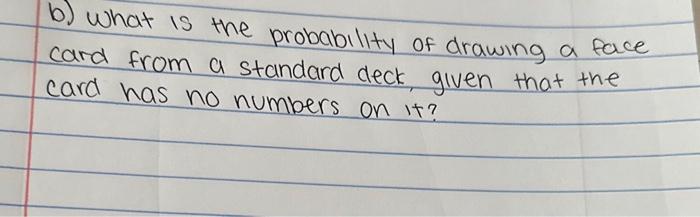 b) what is the probability of drawing a face
card from a standard deck, given that the
card has no numbers on it?